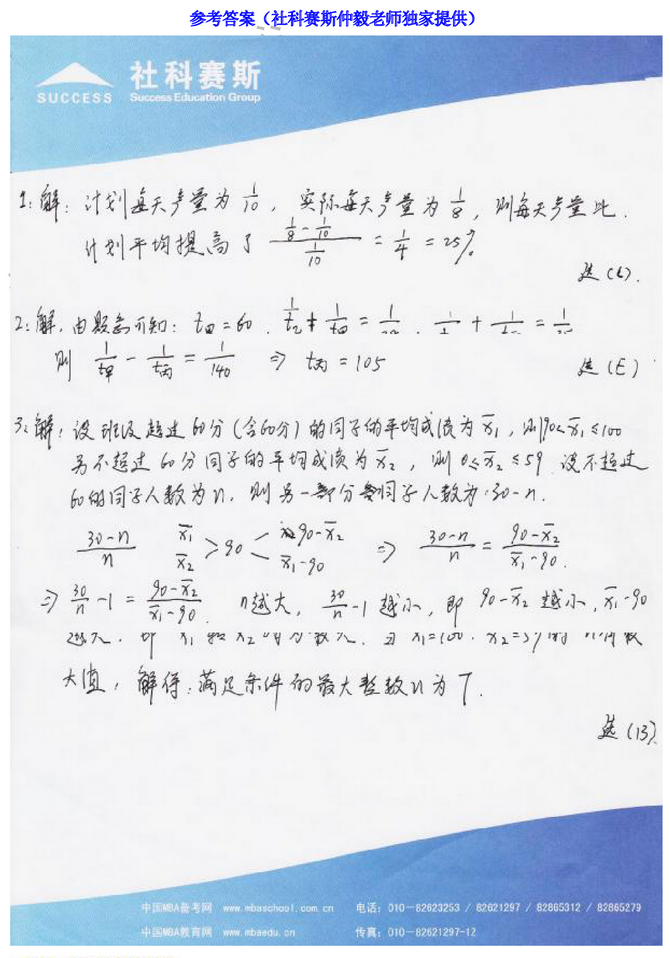 参考答案（社科赛斯仲毅老师独家提供）
社科赛斯
SUCCESS
Success Education Group
1: 解: 计划每天产量为 1/10 , 实际每天产量为 1/8 , 则每天产量比
计划平均提高了 (1/8 - 1/10) / (1/10) = 1/4 = 25%
选
2: 解, 由题意可知: t甲=60 .
则 1/t甲 - 1/t丙 = 1/140 ⇒ t丙 = 105
选 (E)
3: 解: 设班级超过60分(含60分)的同学的平均成绩为 x̄₁ , 则 90≤x̄₁≤100
另不超过60分同学的平均成绩为 x̄₂ , 则 0≤x̄₂≤59 设不超过
60的同学人数为n, 则另一部分同学人数为30-n.
(30-n)/n x̄₁ x̄₂ > 90 < 90-x̄₂ x̄₁-90 ⇒ (30-n)/n = (90-x̄₂)/(x̄₁-90) .
⇒ 30/n -1 = (90-x̄₂)/(x̄₁-90) . n越大, 30/n -1 越小, 即 90-x̄₂ 越小, x̄₁-90
大值, 解得: 满足条件的最大整数n为 7 .
选 (13)
中国MBA备考网 www.mbaschool.com.cn 电话: 010-82623253 / 82621297 / 82865312 / 82865279
中国MBA教育网 www.mbaedu.cn 传真: 010-82621297-12